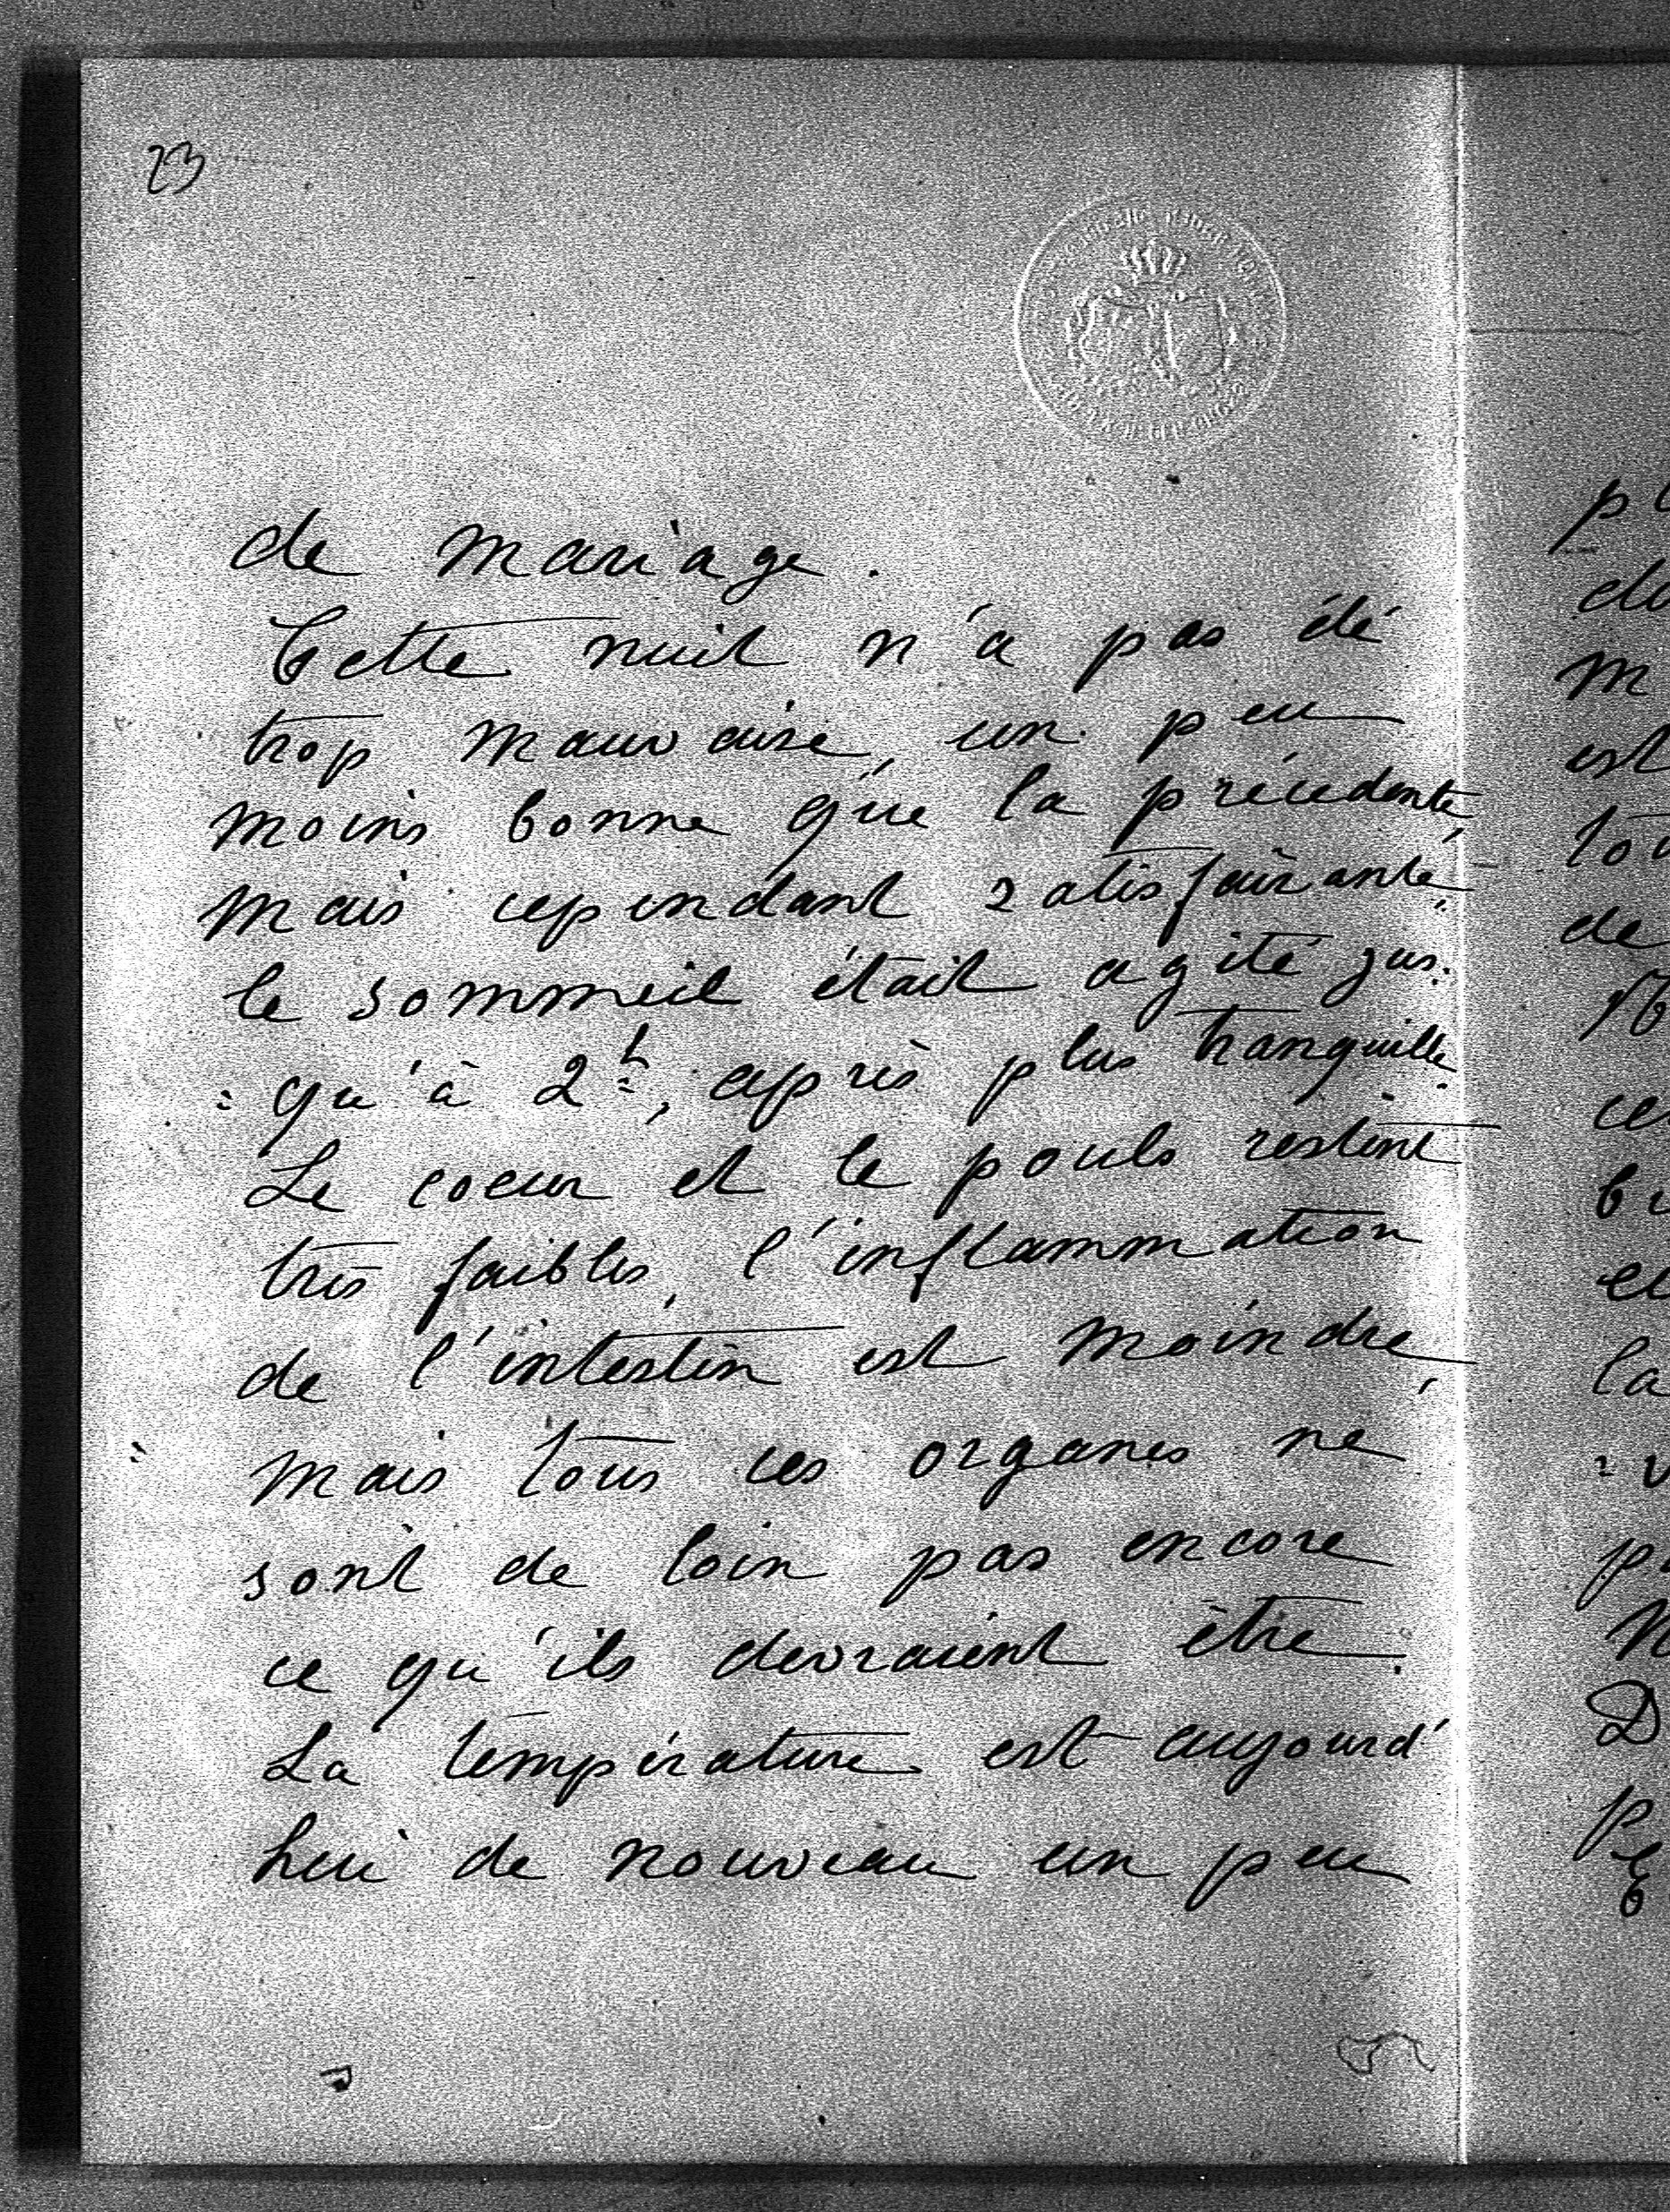 23
de mariage.
Cette nuit n'a pas été
trop mauvaise, un peu
moins bonne que la précédente,
mais cependant satisfaisante,
le sommeil était agité jus:
:qu'à 2h, après plus tranquille.
Le coeur et le pouls restent
très faibles, l'inflammation
de l'intestin est moindre,
mais tous ces organes ne
sont de loin pas encore
ce qu'ils devraient être.
La température est aujourd'
hui de nouveau un peu